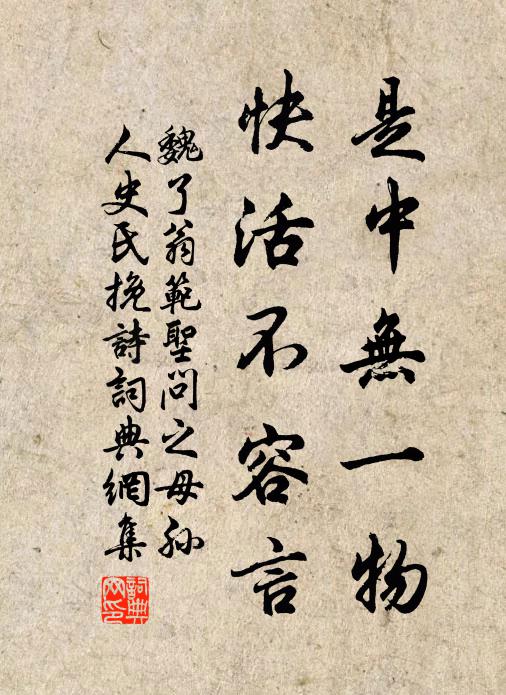 是中無一物
快活不容言
魏了翁範聖問之母孙
人史氏挽詩詞典網集
詞典